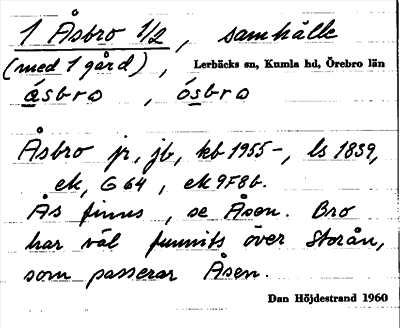 1 Åsbro 1/2, samhälle
(med 1 gård), Lerbäcks sn, Kumla hd, Örebro län
åsbro, ósbro
Åsbro jr, jb, kb 1955–, ls 1839,
ek, G 64, ek 9F8b.
Ås finns, se Åsen. Bro
har väl funnits över Storån,
som passerar Åsen.
Dan Höjdestrand 1960